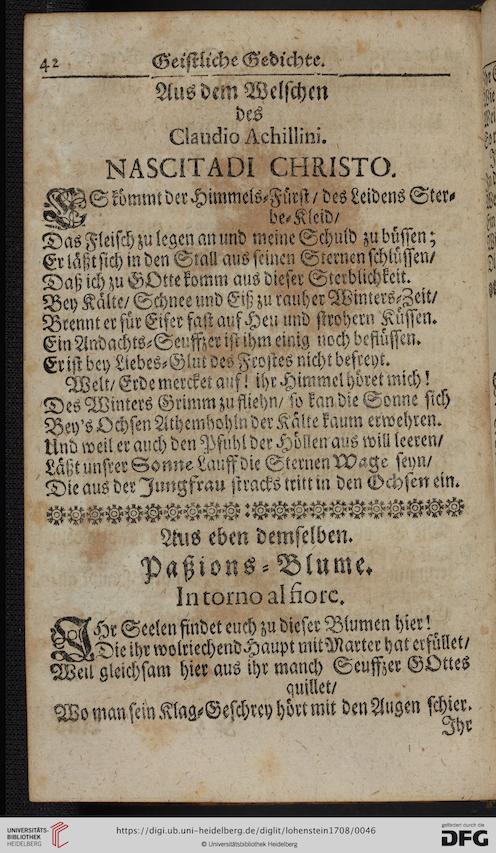 42 Geistliche Gedichte.
Aus dem Welschen
des
Claudio Achillini.
NASCITA DI CHRISTO.
ES kömmt der Himmels-Fürst / des Leidens Ster-
be-Kleid /
Das Fleisch zu legen an und meine Schuld zu büssen;
Er läßt sich in den Stall aus seinen Sternen schlüssen /
Daß ich zu GOtte komm aus dieser Sterblichkeit.
Bey Kälte / Schnee und Eiß zu rauher Winters-Zeit /
Brennt er für Eifer fast auf Heu und strohern Küssen.
Ein Andachts-Seuffzer ist ihm einig noch beflüssen.
Er ist bey Liebes-Glut des Frostes nicht befreyt.
Welt / Erde mercket auf! ihr Himmel höret mich!
Des Winters Grimm zu fliehn / so kan die Sonne sich
Bey's Ochsen Athemhohln der Kälte kaum erwehren.
Und weil er auch den Pfuhl der Höllen aus will leeren /
Läßt unsrer Sonne Lauff die Sternen Wage seyn /
Die aus der Jungfrau stracks tritt in den Ochsen ein.
Aus eben demselben.
Paßions-Blume.
In torno al fiore.
IHr Seelen findet euch zu dieser Blumen hier!
Die ihr wolriechend Haupt mit Marter hat erfüllet /
Weil gleichsam hier aus ihr manch Seuffzer GOttes
quillet /
Wo man sein Klag-Geschrey hört mit den Augen schier.
Ihr
UNIVERSITÄTS-
BIBLIOTHEK
HEIDELBERG
https://digi.ub.uni-heidelberg.de/diglit/lohenstein1708/0046
© Universitätsbibliothek Heidelberg
gefördert durch die
DFG